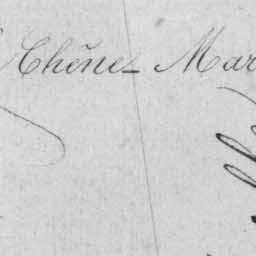 Chêne_ Mar